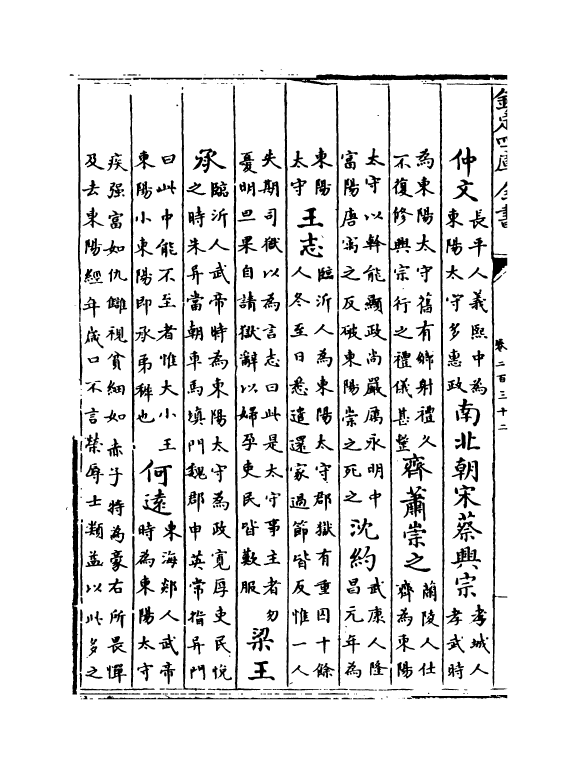 欽定四庫全書
卷二百三十二
仲文
長平人義熙中為
東陽太守多惠政
南北朝宋蔡興宗
考城人
孝武時
為東陽太守舊有鄉射禮久
不復修興宗行之禮儀甚整
齊蕭崇之
蘭陵人仕
齊為東陽
太守以幹能顯政尚嚴厲永明中
富陽唐㝢之反破東陽崇之死之
沈約
武康人隆
昌元年為
東陽
太守
王志
臨沂人為東陽太守郡獄有重囚十餘
人冬至日悉遣還家過節皆反惟一人
失期司獄以為言志曰此是太守事主者勿
憂明旦果自請獄辭以婦孕吏民皆歎服
梁王
承
臨沂人武帝時為東陽太守為政寬厚吏民悅
之時朱异當朝車馬填門魏郡申英常指异門
曰此中能不至者惟大小王
東陽小東陽即承弟稺也
何遠
東海郯人武帝
時為東陽太守
疾强富如仇讎視貧細如赤子特為豪右所畏憚
及去東陽經年歲口不言榮辱士類益以此多之